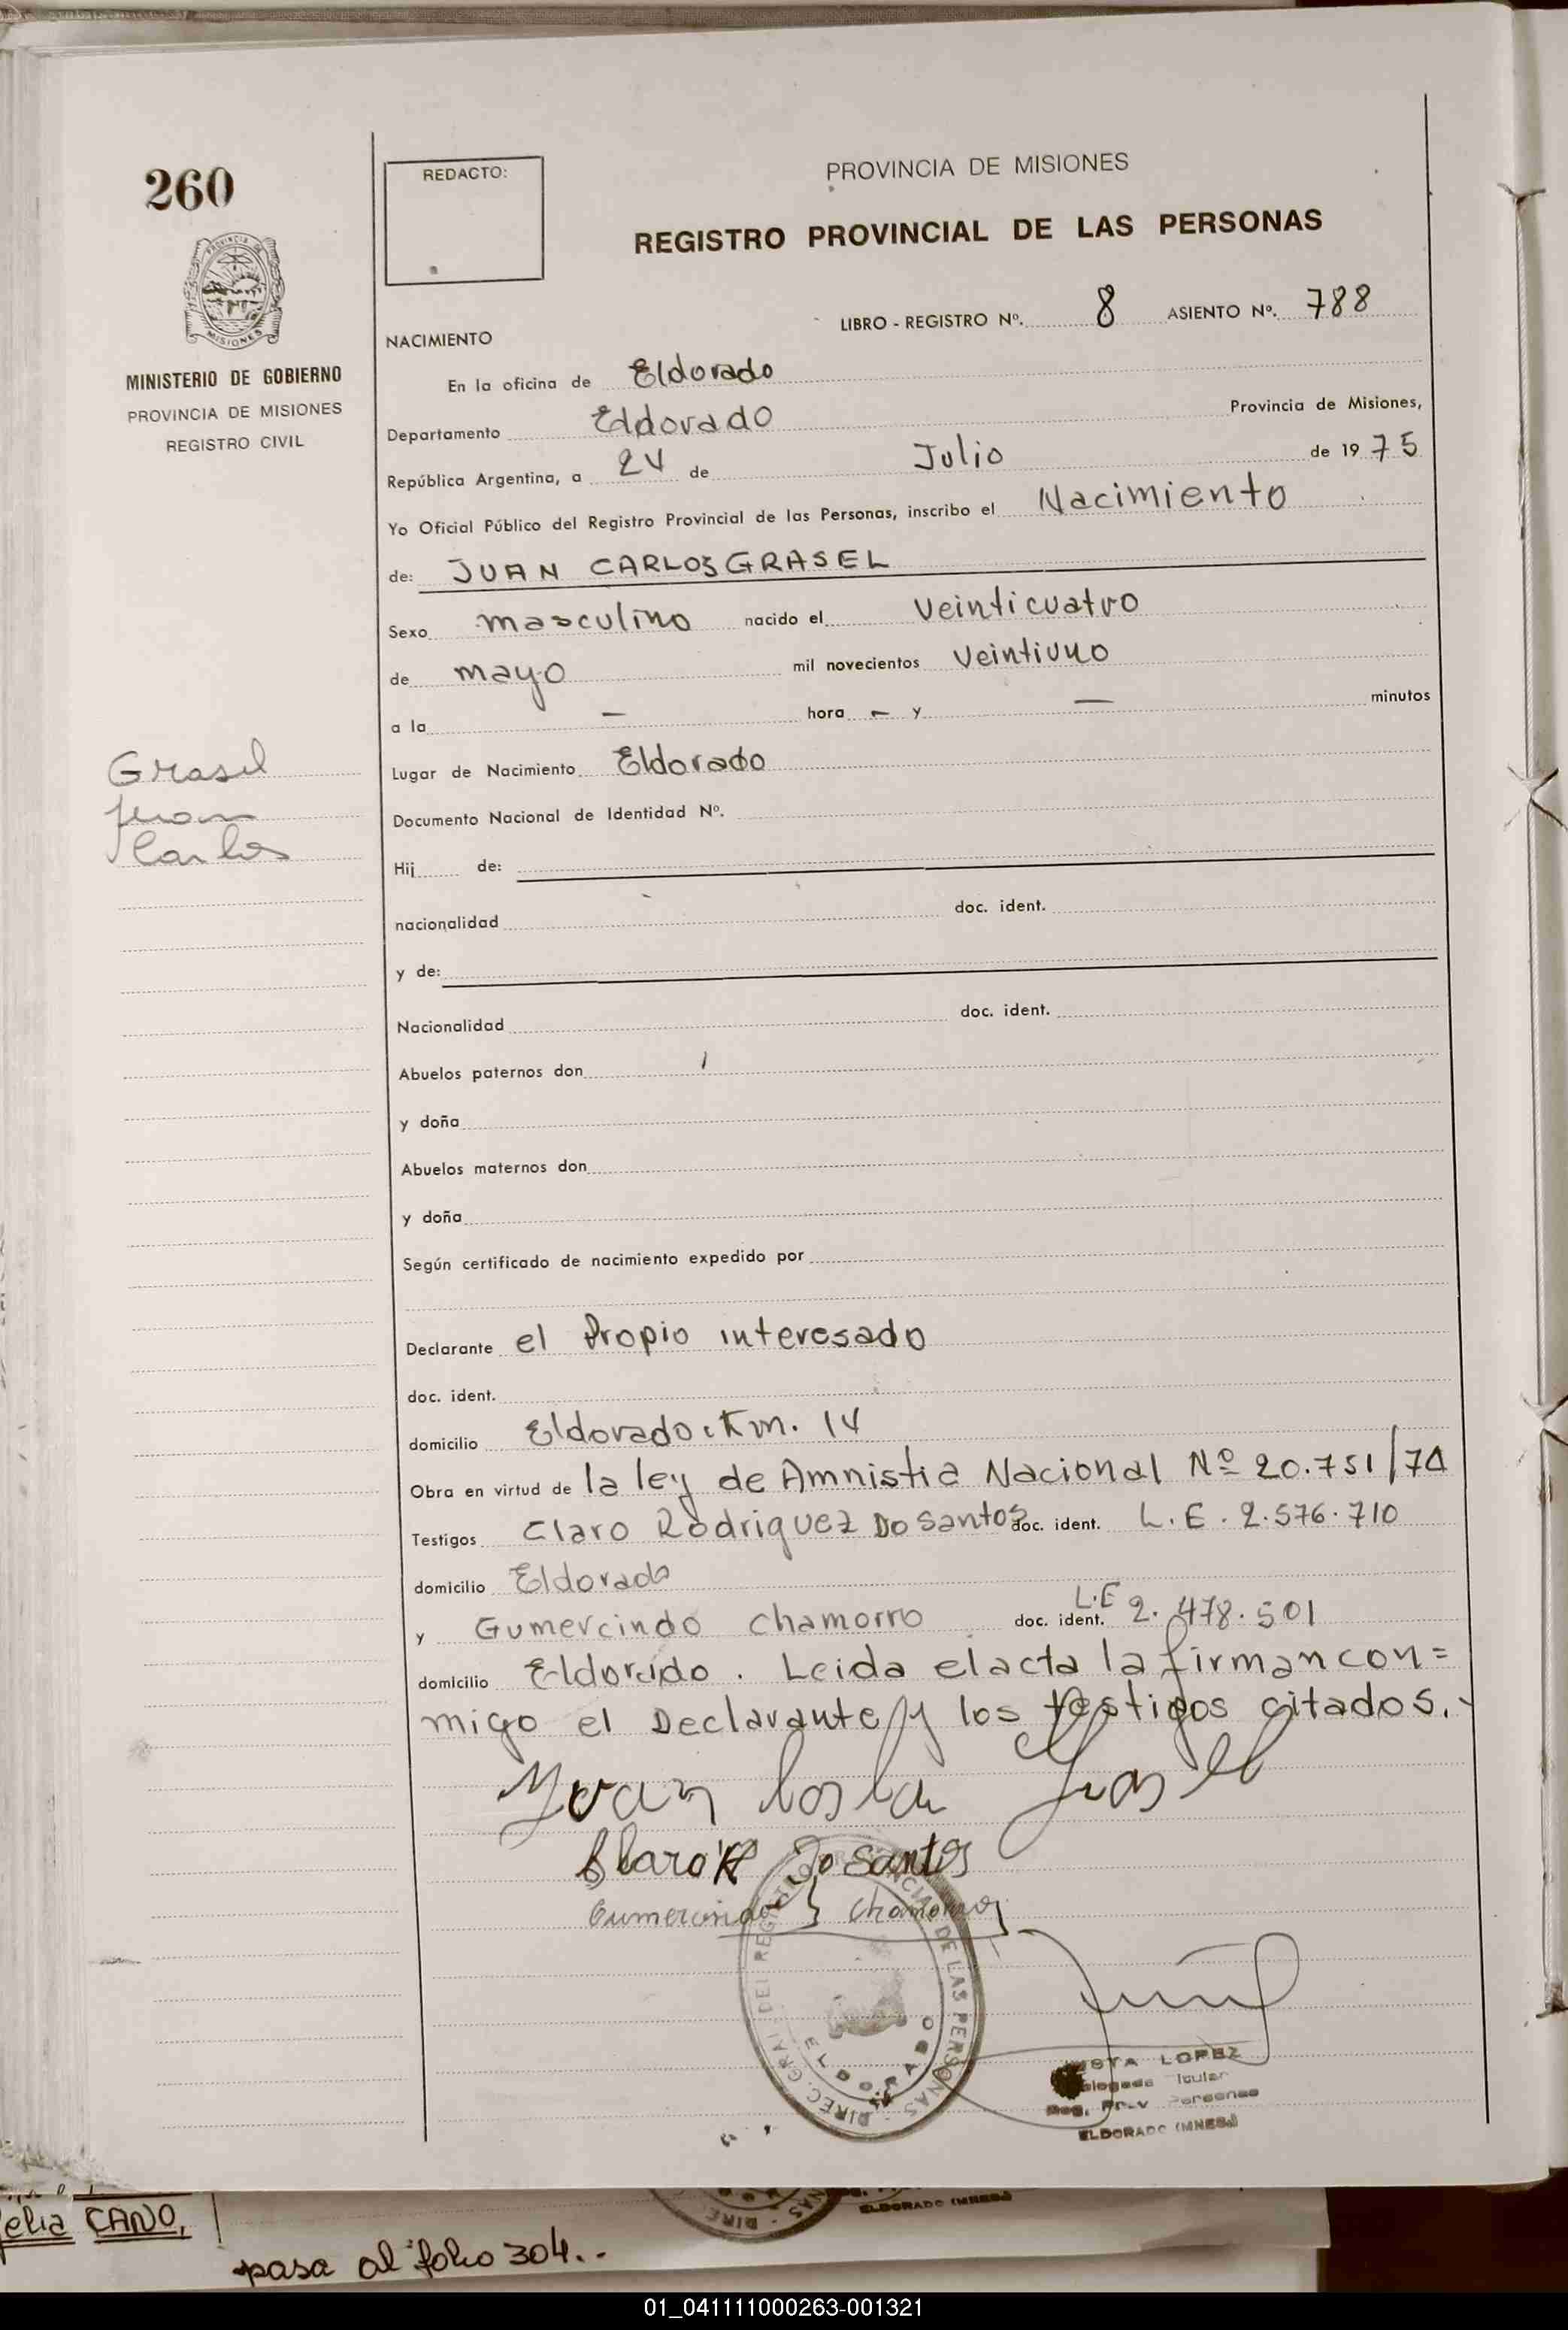 260
REDACTO:
PROVINCIA DE MISIONES
REGISTRO PROVINCIAL DE LAS PERSONAS
MINISTERIO DE GOBIERNO
PROVINCIA DE MISIONES
REGISTRO CIVIL
LIBRO - REGISTRO Nº. 8 ASIENTO Nº. 788
NACIMIENTO
En la oficina de Eldorado
Departamento Eldorado Provincia de Misiones,
República Argentina, a 24 de Julio de 1975
Yo Oficial Público del Registro Provincial de las Personas, inscribo el Nacimiento
de: JUAN CARLOS GRASEL
Sexo masculino nacido el veinticuatro
de mayo mil novecientos veintiuno
a la — hora — y — minutos
Grasel
Juan
Carlos
Lugar de Nacimiento Eldorado
Documento Nacional de Identidad Nº.
Hij de:
nacionalidad doc. ident.
y de:
Nacionalidad doc. ident.
Abuelos paternos don
y doña
Abuelos maternos don
y doña
Según certificado de nacimiento expedido por
Declarante el Propio interesado
doc. ident.
domicilio Eldorado. Km. 14
Obra en virtud de la ley de Amnistia Nacional Nº 20.751/74
Testigos Claro Rodriguez Do Santos doc. ident. L.E. 2.576.710
domicilio Eldorado
y Gumercindo Chamorro doc. ident. L.E 2.478.501
domicilio Eldorado. Leida el acta la firman con=
migo el Declarante y los testigos citados.
Juan Grasel
Claro R Do Santos
Gumercindo Chamorro
DIREC. GRAL. DEL REGISTRO PROVINCIAL DE LAS PERSONAS
ELDORADO
LOPEZ
Titular
Reg. Prov Personas
ELDORADO (MNES.)
elia CANO,
ELDORADO (MNES.)
pasa al folio 304..
01_041111000263-001321